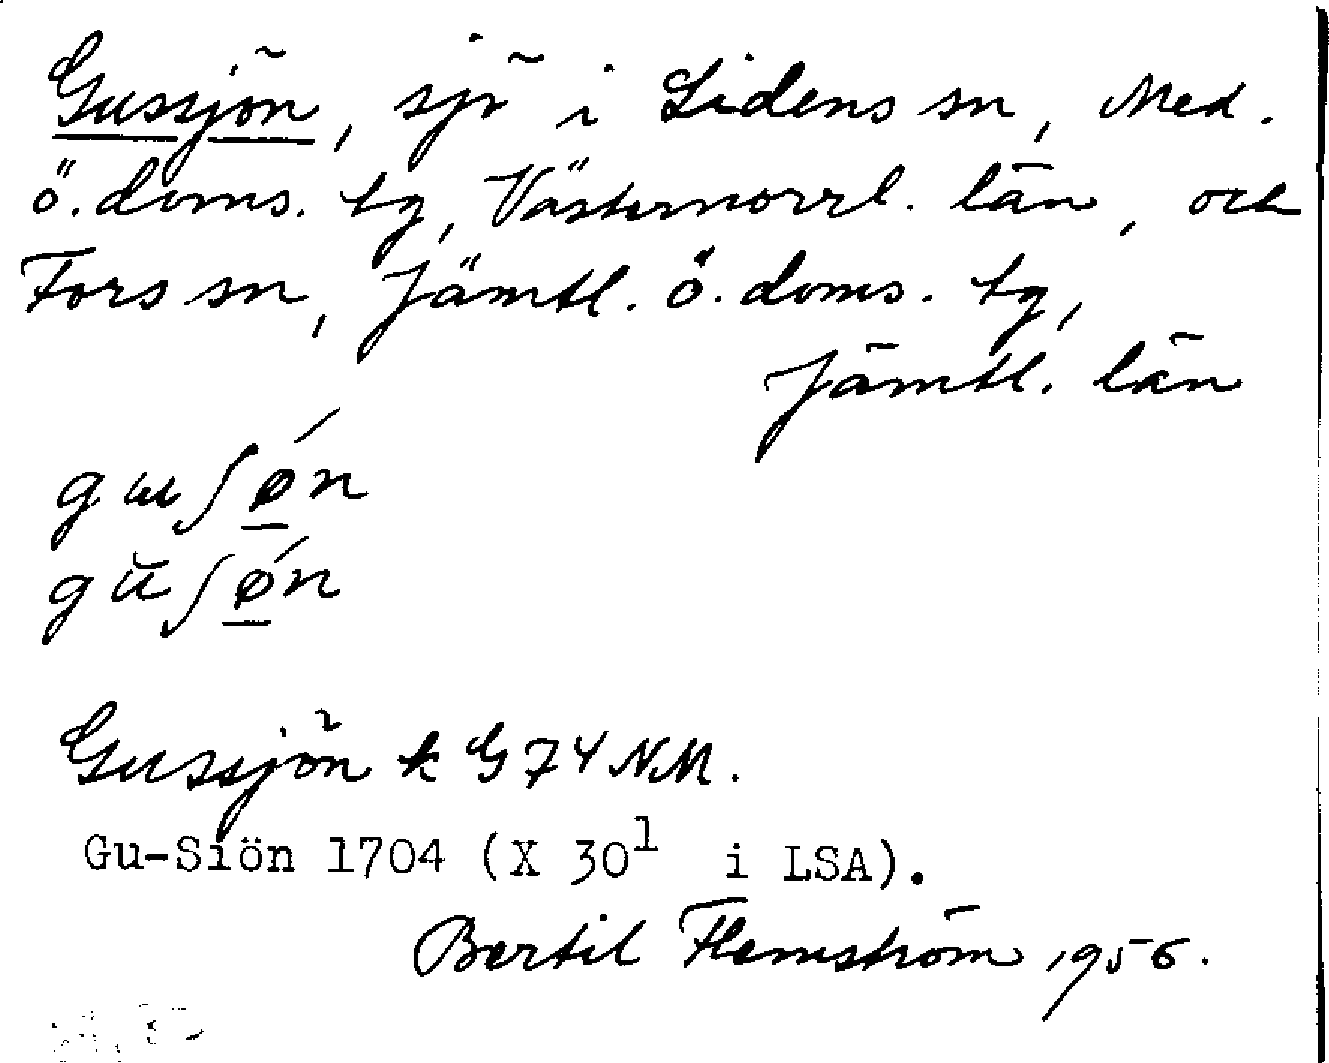 Gussjön, sjö i Lidens sn, Med.
ö. doms. tg, Västernorrl. län, och
Fors sn, Jämtl. ö. doms. tg,
Jämtl. län
guʃǿn
gŭʃǿn
Gussjön k G 74 NM.
Gu-Siön 1704 (X 30¹ i LSA).
Bertil Flemström 1956.